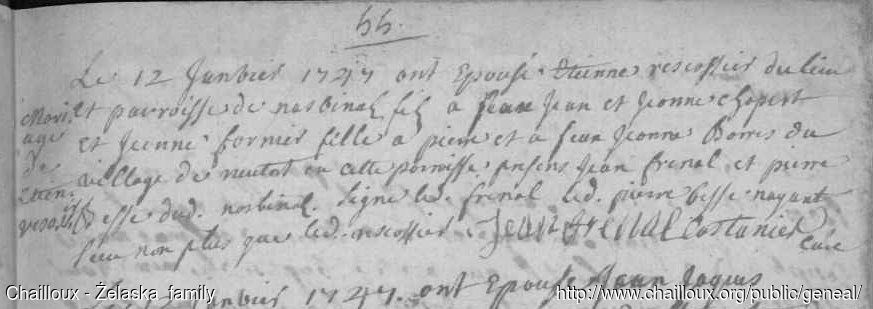 55.
Le 12 Janvier 1747 ont Epousé Etienne rescossier du lieu
Mari et parroisse de nasbinal fil a feu Jean et Jeanne chopert
age et Jeanne fournier fille a pierre et a feue Jeanne Borres du
de village de en cette parroisse presens Jean frenal et pierre
Etien. besse dud. nasbinal. Signe led. frenal led. pierre besse nayant
sceu non plus que led. rescossier. Jean frenal Costanier Curé
Janvier 1747. ont Epousé Jean Jaques
Chailloux - Żelaska family
http://www.chailloux.org/public/geneal/